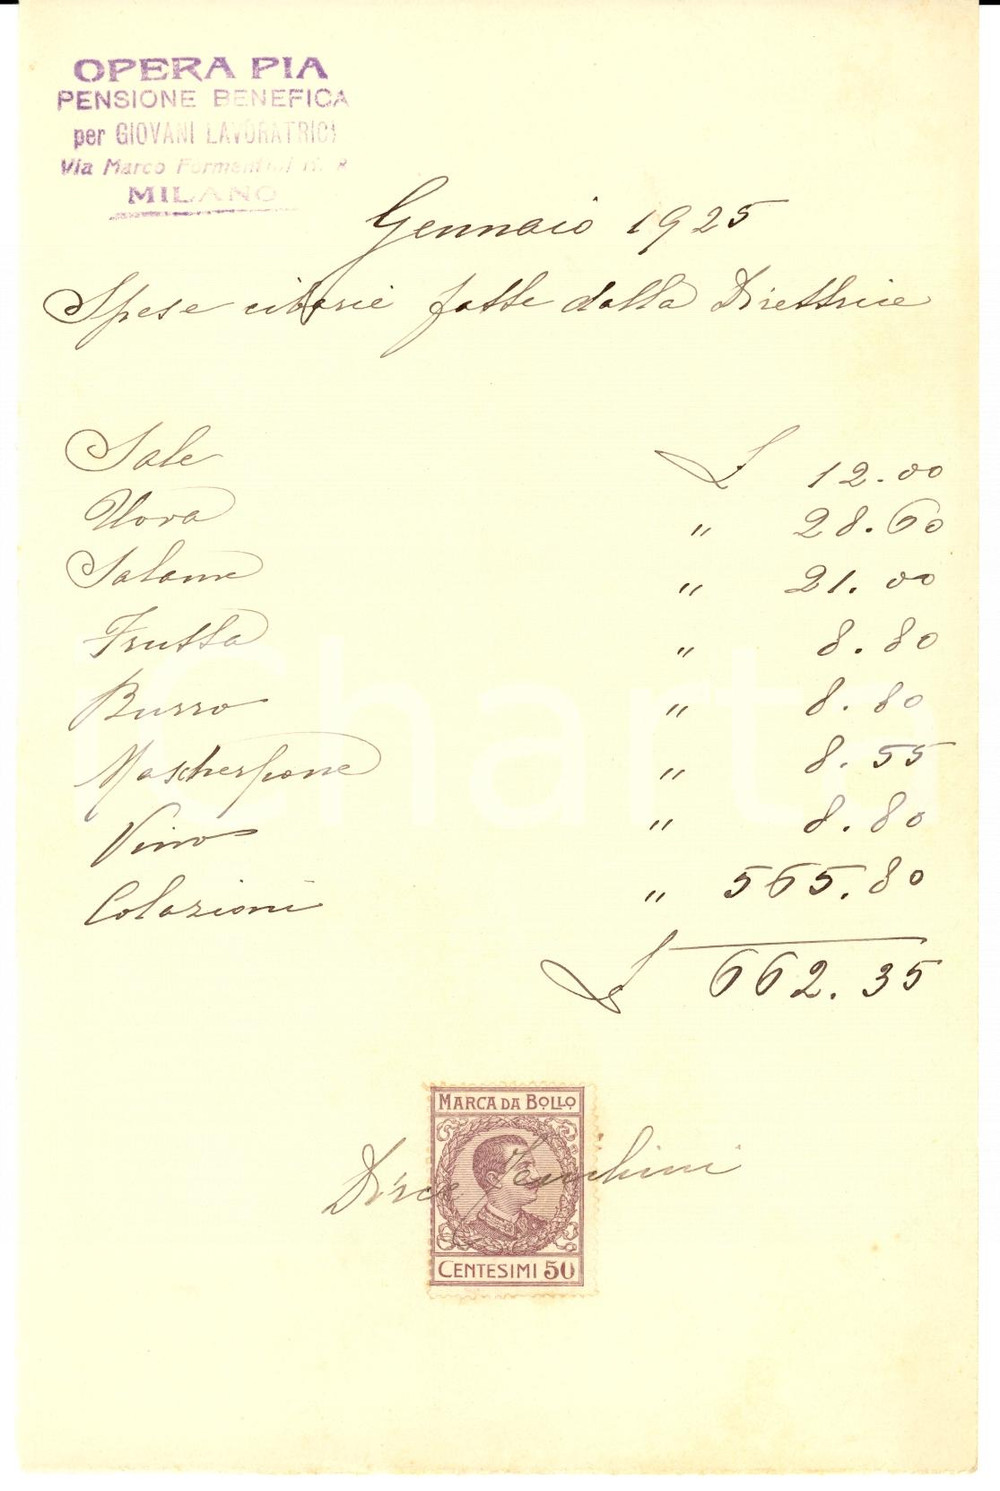 OPERA PIA
PENSIONE BENEFICA
per GIOVANI LAVORATRICI
Via Marco Formentini N. 8
MILANO
Gennaio 1925
Spese cibarie fatte dalla Direttrice
Sale £ 12.00
Uova " 28.60
Salame " 21.00
Frutta " 8.80
Burro " 8.80
Mascherpone " 8.55
Vino " 8.80
Colazioni " 565.80
£ 662.35
MARCA DA BOLLO
Dirce
CENTESIMI 50
iCharta